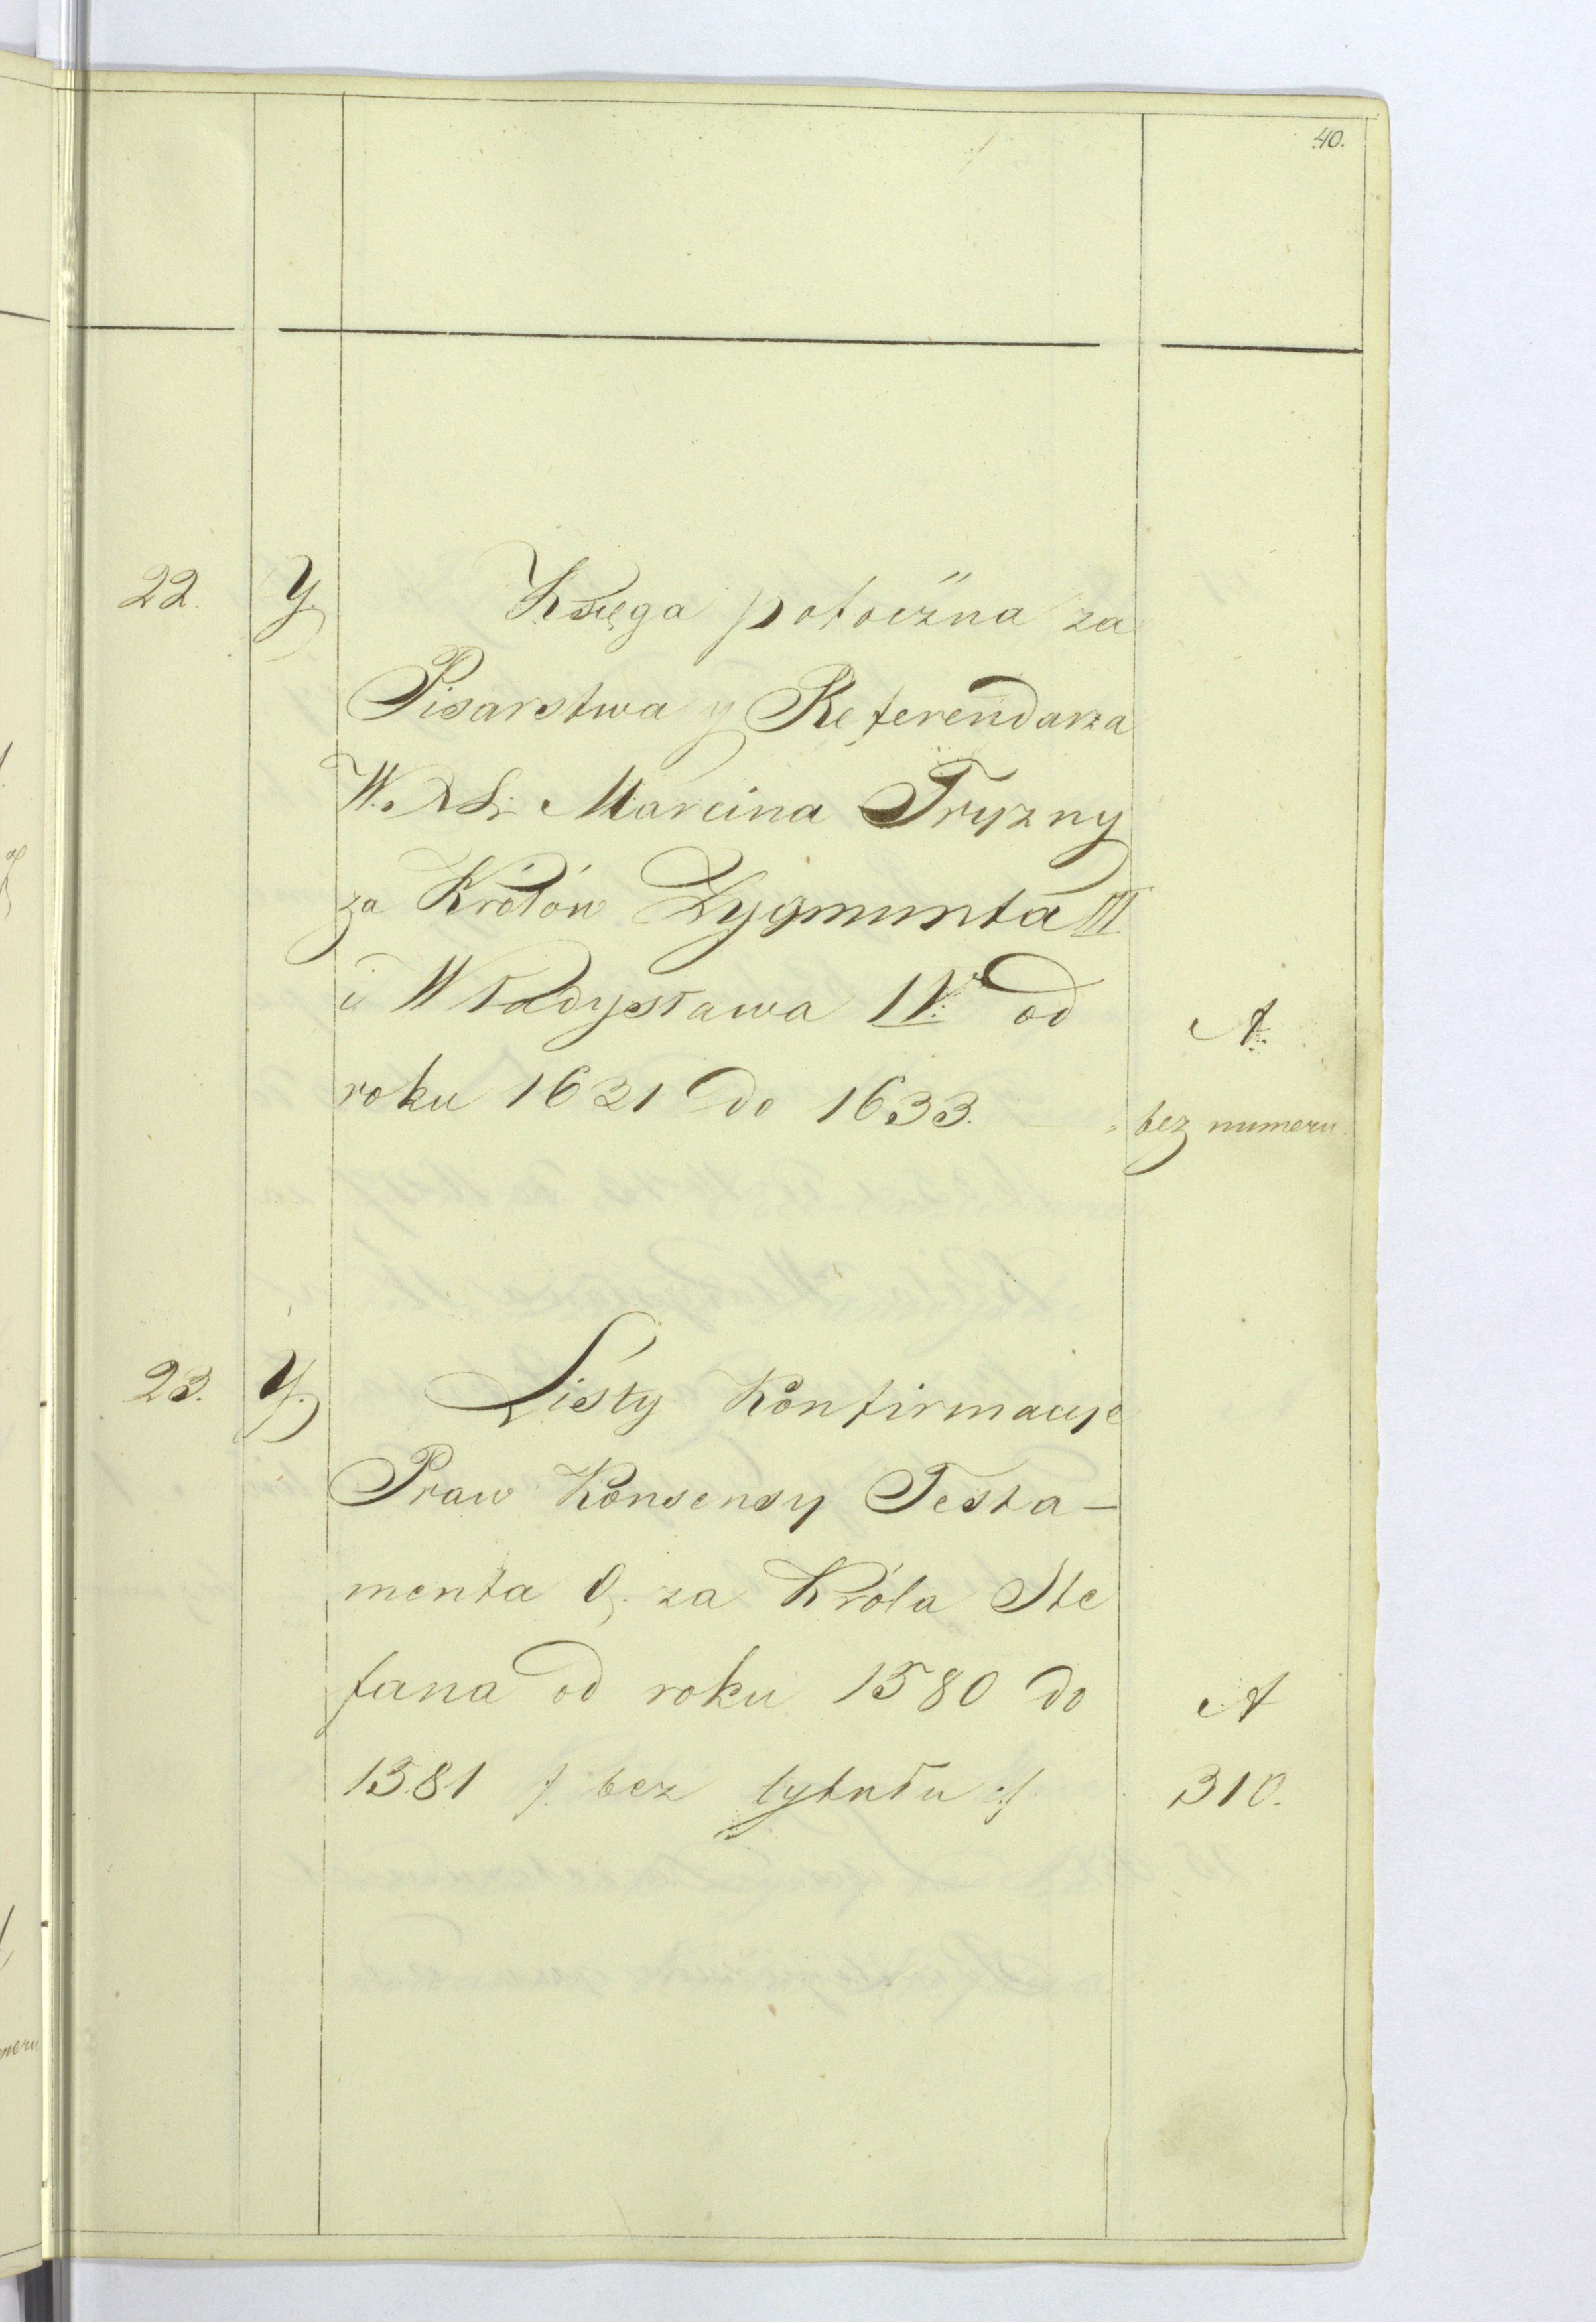 40.
22. Y. Księga potoczna za
Pisarstwa y Referendarza
W. X L. Marcina Tryzny
za Królów Zygmunta III
i Władysława IV. od
roku 1621 do 1633.
A.
bez numeru
23. Y. Listy Konfirmacye
Praw Konsensy Testa-
menta &. za Króla Ste
fana od roku 1580 do
1581 /: bez tytułu :/
A
310.